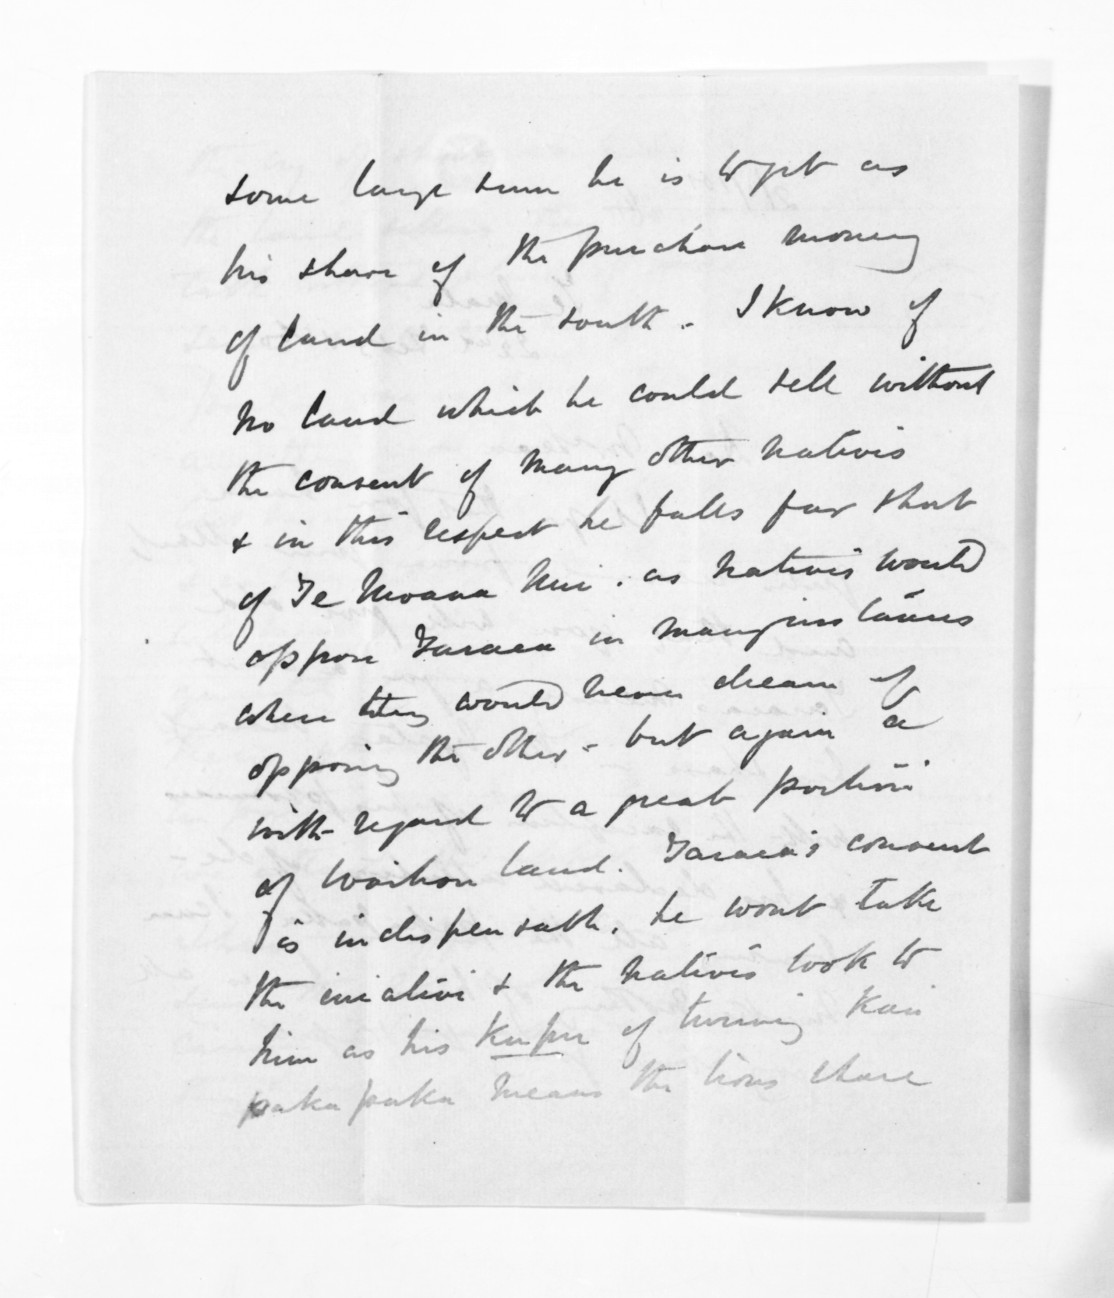 some large sum he is to get as
his share of the purchase money
of land in the south. I know of
no land which he could sell without
the consent of many other natives
& in this respect he falls far short
of Te Moana Nui. as natives would
oppose Taraia in many instances
when they would never dream of
opposing the other - but again a
with regard to a great portion
of land. Taraia's consent
is indispensable. he wont take
the iniative & the natives look to
him as his of Kai
paka paka means the lions share